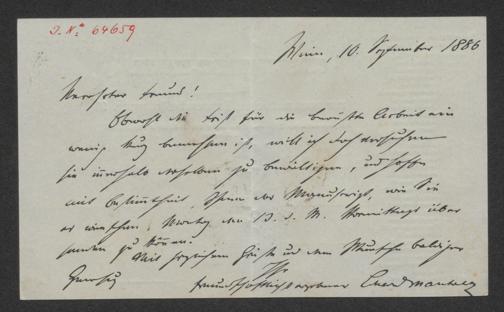 J. Nº 64659
Wien, 10. September 1886
Verehrter Freund!
Obwohl die Frist für die bewußte Arbeit ein
wenig knapp bemessen ist, will ich doch versuchen
sie innerhalb derselben zu bewältigen, und hoffe
mit Bestimmtheit, Ihnen das Manuscript, wie Sie
es wünschen Montag den 13. d. M. Vormittags über
senden zu können.
Mit herzlichem Gruß und dem Wunsche baldiger
Genesung
Ihr
freundschaftlichst ergebener